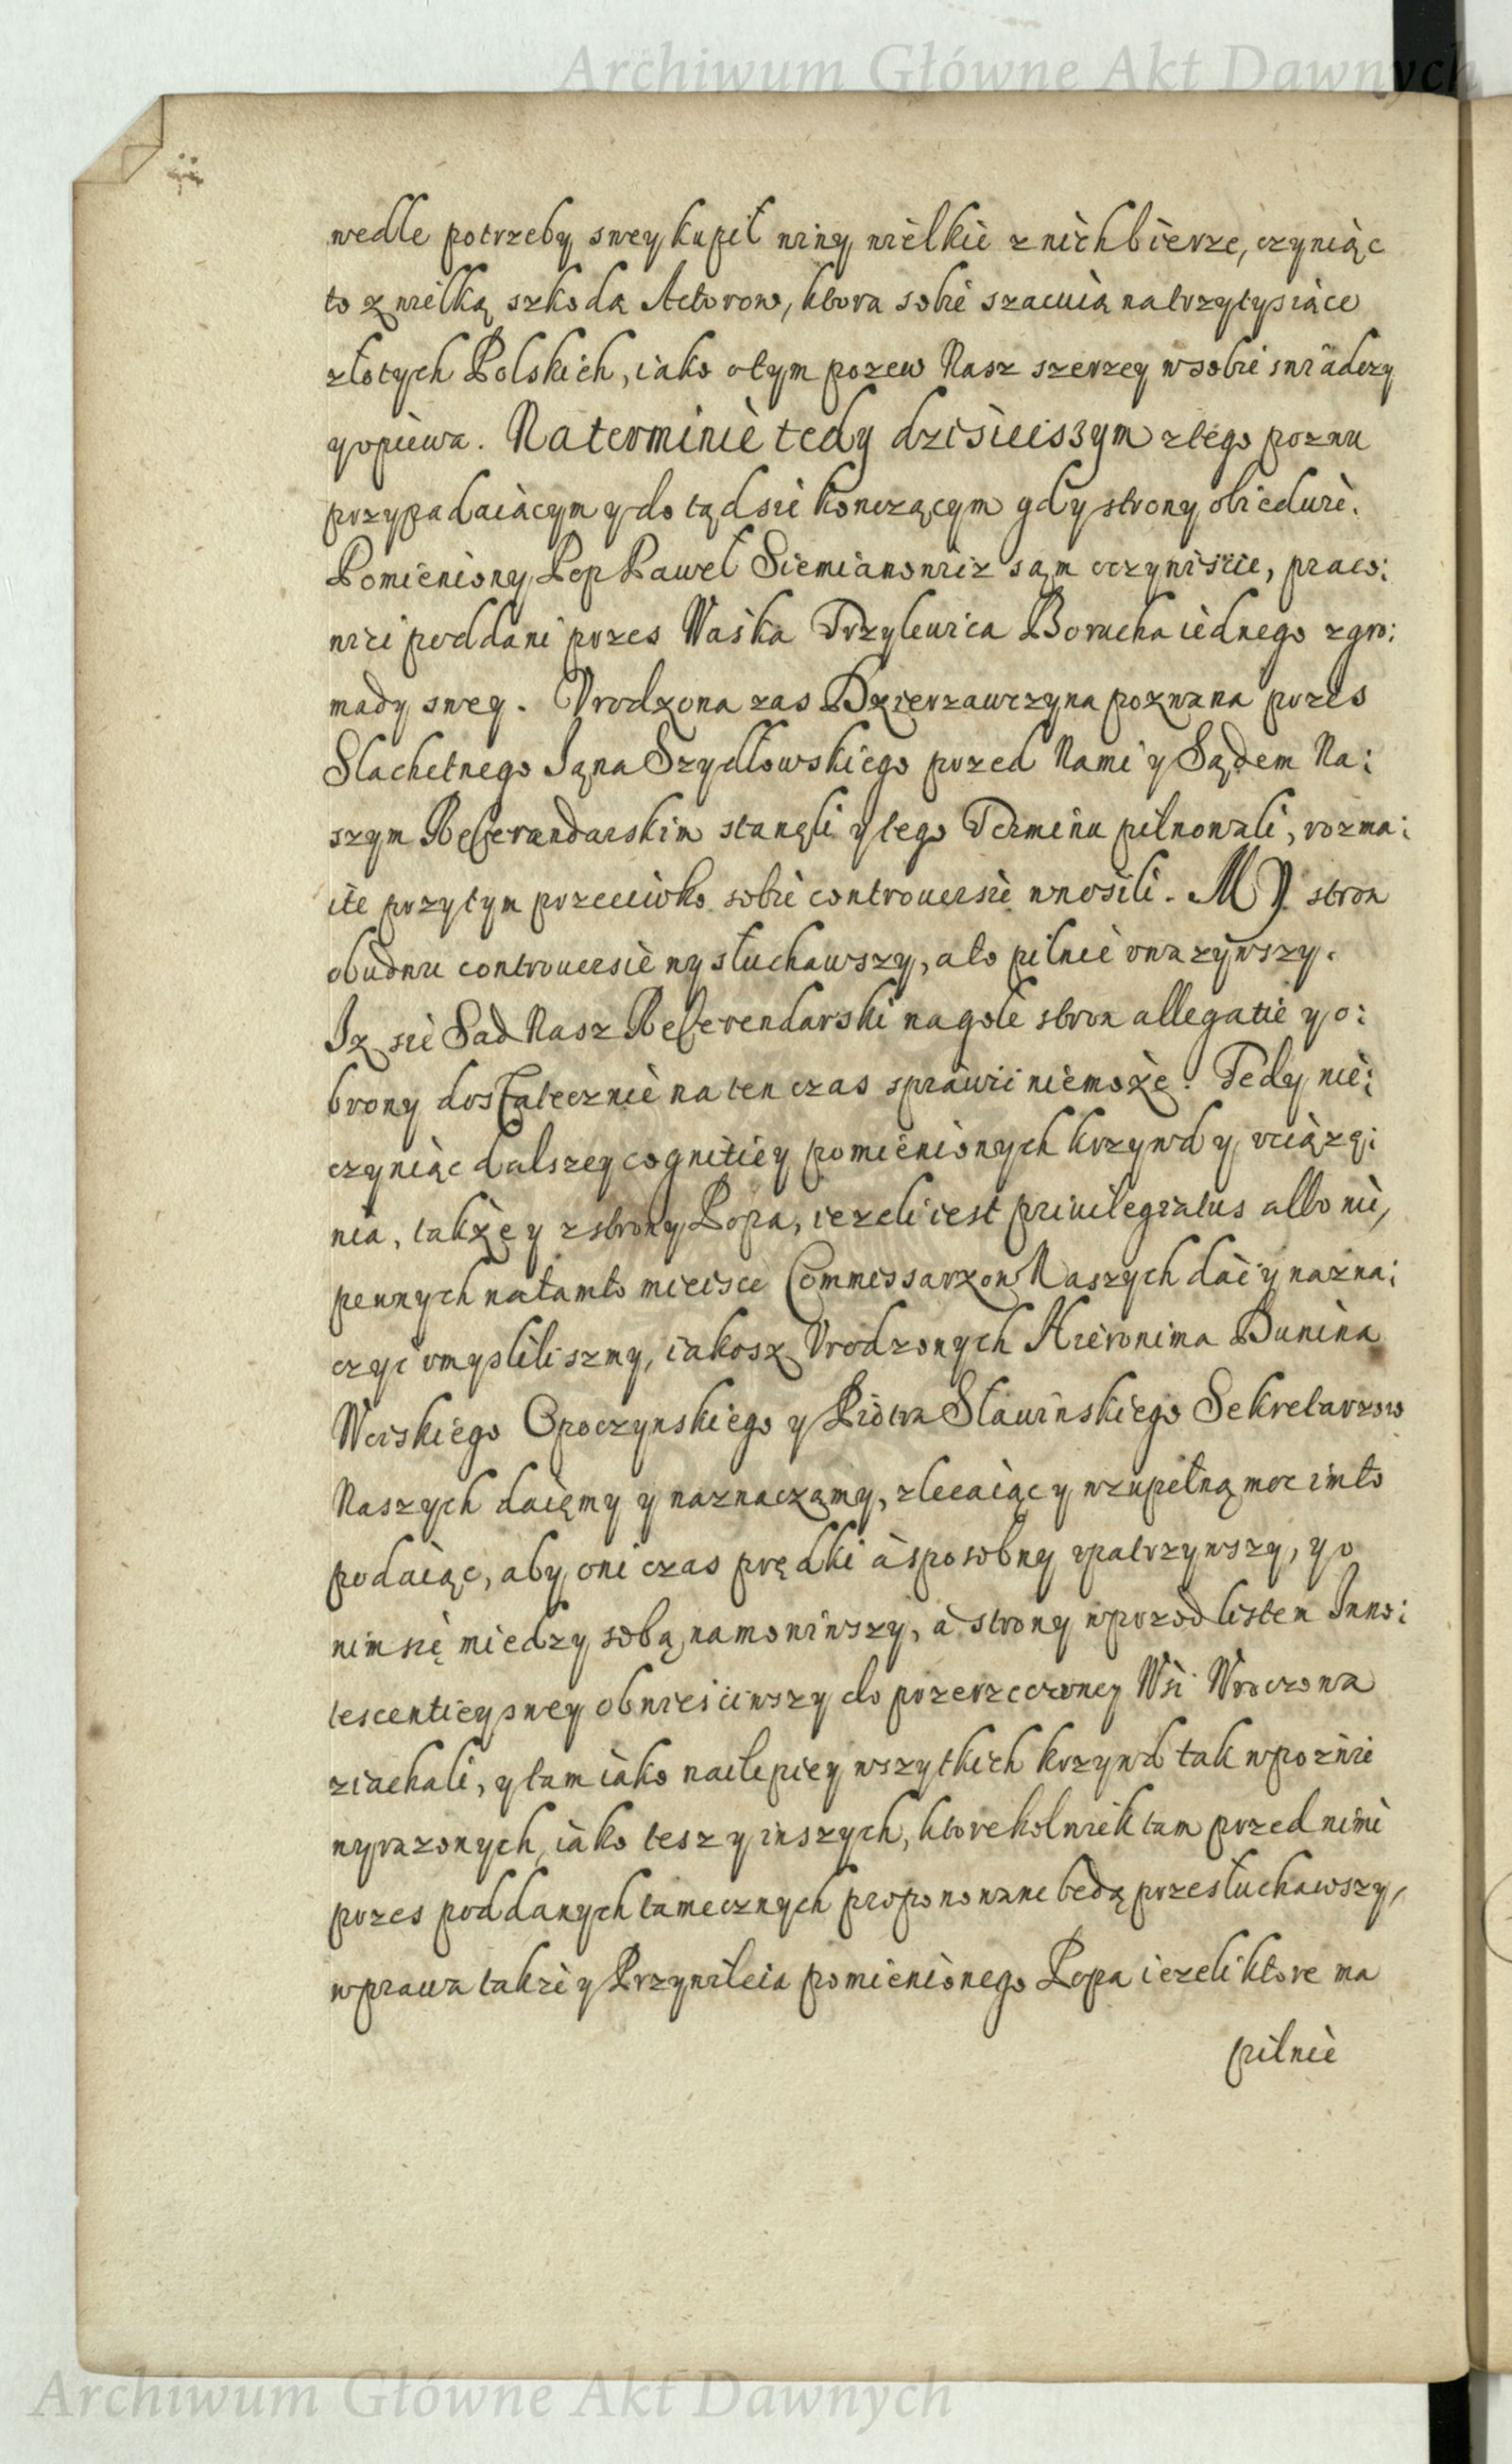 Archiwum Główne Akt Dawnych
wedle potrzeby swey kupił winy wielkie z nich bierze, czyniąc
to z wielką szkodą Actorow, ktora sobie szacuią na trzy tysiące
złotych Polskich, iako o tym pozew Nasz szerzey w sobie swiadczy
y opiewa. Na terminie tedy dzisieiszym z tego pozwu
przypadaiącym y do tąd sie konczącym gdy strony obiedwie.
Pomieniony Pop Paweł Siemianowicz sąm oczywiscie, praco:
wici poddani przes Waśka Borucha iednego z gro:
mady swey. Vrodzona zas Dzierzawczyna pozwana przes
Slachetnego Jąna Szydłowskiego przed Nami y Sądem Na:
szym Referandarskim stanęli y tego Terminu pilnowali, rozma:
ite przy tym przeciwko sobie controuersie wnosili. MY stron
obudwu controuersie wysłuchawszy, a to pilnie vwazywszy.
Iz sie Sad Nasz Referendarski na gołe stron allegatie y o:
brony dostatecznie na ten czas sprawic niemoże. Tedy nie:
czyniąc dalszey cognitiey pomienionych krzywd y vciązę:
nia, takze y z strony Popa, iezeli iest priuilegiatus albo nie,
pewnych na tamto mieisce Commissarzow Naszych dać y nazna:
czyć vmyslilismy, iakosz Vrodzonych Hieronima Dunina
Woiskiego Opoczynskiego y Piotra Sławinskiego Sekretarzow
Naszych daięmy y naznaczamy, zlecaiąc y w zupełną moc im to
podaiąc, aby oni czas prędki á sposobny vpatrzywszy, y o
nim się miedzy sobą namowiwszy, á strony wprzod listem Inno:
tescentiey swey obwieściwszy do przerzeczoney Wsi Wroczowa
ziachali, y tam iáko nailepiey wszytkich krzywd tak w pozwie
wyrazonych, iako tesz y inszych, ktorekolwiek tam przed nimi
przes poddanych tamecznych proponowane będą przesłuchawszy,
w prawa takze y Przywileia pomienionego Popa iezeli ktore ma
pilnie
Archiwum Główne Akt Dawnych